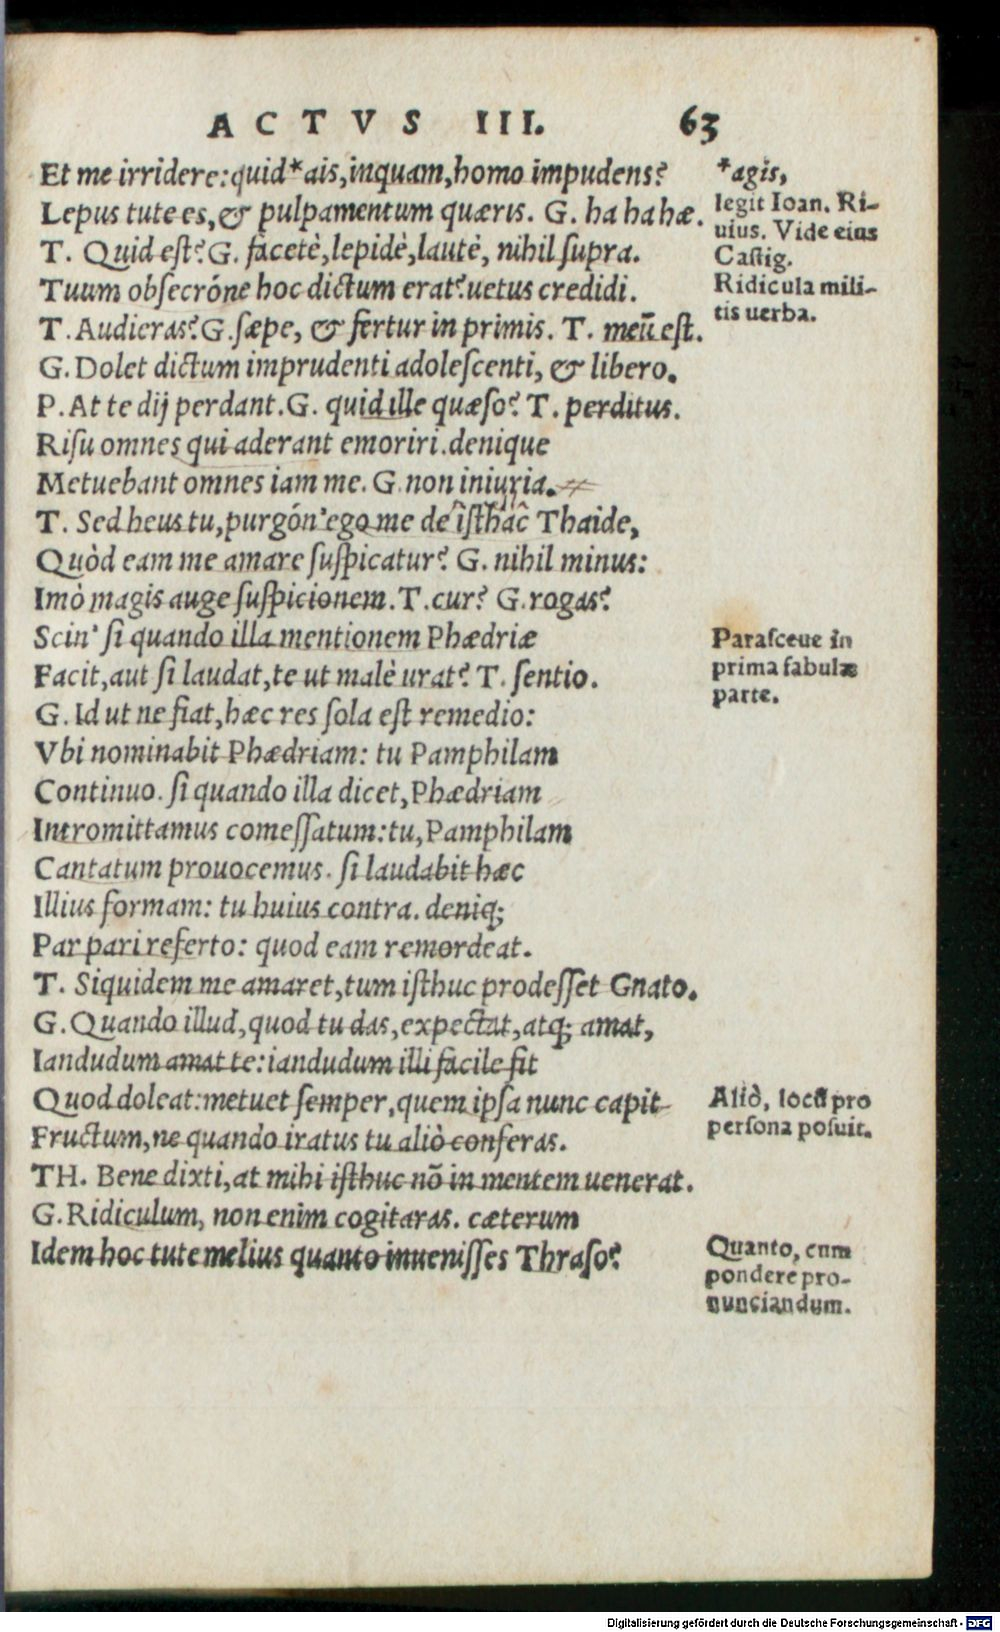 ACTVS III. 63
Et me irridere: quid*ais, inquam, homo impudens?
Lepus tute es, & pulpamentum quæris. G. ha ha hæ.
T. Quid est? G. facetè, lepidè, lautè, nihil supra.
Tuum obsecróne hoc dictum erat? uetus credidi.
T. Audieras? G. sæpe, & fertur in primis. T. meũ est.
G. Dolet dictum imprudenti adolescenti, & libero.
P. At te dij perdant. G. quid ille quæso? T. perditus.
Risu omnes qui aderant emoriri. denique
Metuebant omnes iam me. G. non iniuria.
T. Sed heus tu, purgón' ego me de isthac Thaide,
Quòd eam me amare suspicatur? G. nihil minus:
Imò magis auge suspicionem. T. cur? G. rogas?
Scin' si quando illa mentionem Phædriæ
Facit, aut si laudat, te ut malè urat? T. sentio.
G. Id ut ne fiat, hæc res sola est remedio:
Vbi nominabit Phædriam: tu Pamphilam
Continuo. si quando illa dicet, Phædriam
Intromittamus comessatum: tu, Pamphilam
Cantatum prouocemus. si laudabit hæc
Illius formam: tu huius contra. deniq;
Par pari referto: quod eam remordeat.
T. Siquidem me amaret, tum isthuc prodesset Gnato.
G. Quando illud, quod tu das, expectat, atq; amat,
Iandudum amat te: iandudum illi facile fit
Quod doleat: metuet semper, quem ipsa nunc capit
Fructum, ne quando iratus tu aliò conferas.
TH. Bene dixti, at mihi isthuc nõ in mentem uenerat.
G. Ridiculum, non enim cogitaras. cæterum
Idem hoc tute melius quanto inuenisses Thraso?
*agis,
legit Ioan. Ri-
uius. Vide eius
Castig.
Ridicula mili-
tis uerba.
Parasceue in
prima fabulæ
parte.
Aliò, locũ pro
persona posuit.
Quanto, cum
pondere pro-
nunciandum.
Digitalisierung gefördert durch die Deutsche Forschungsgemeinschaft - DFG